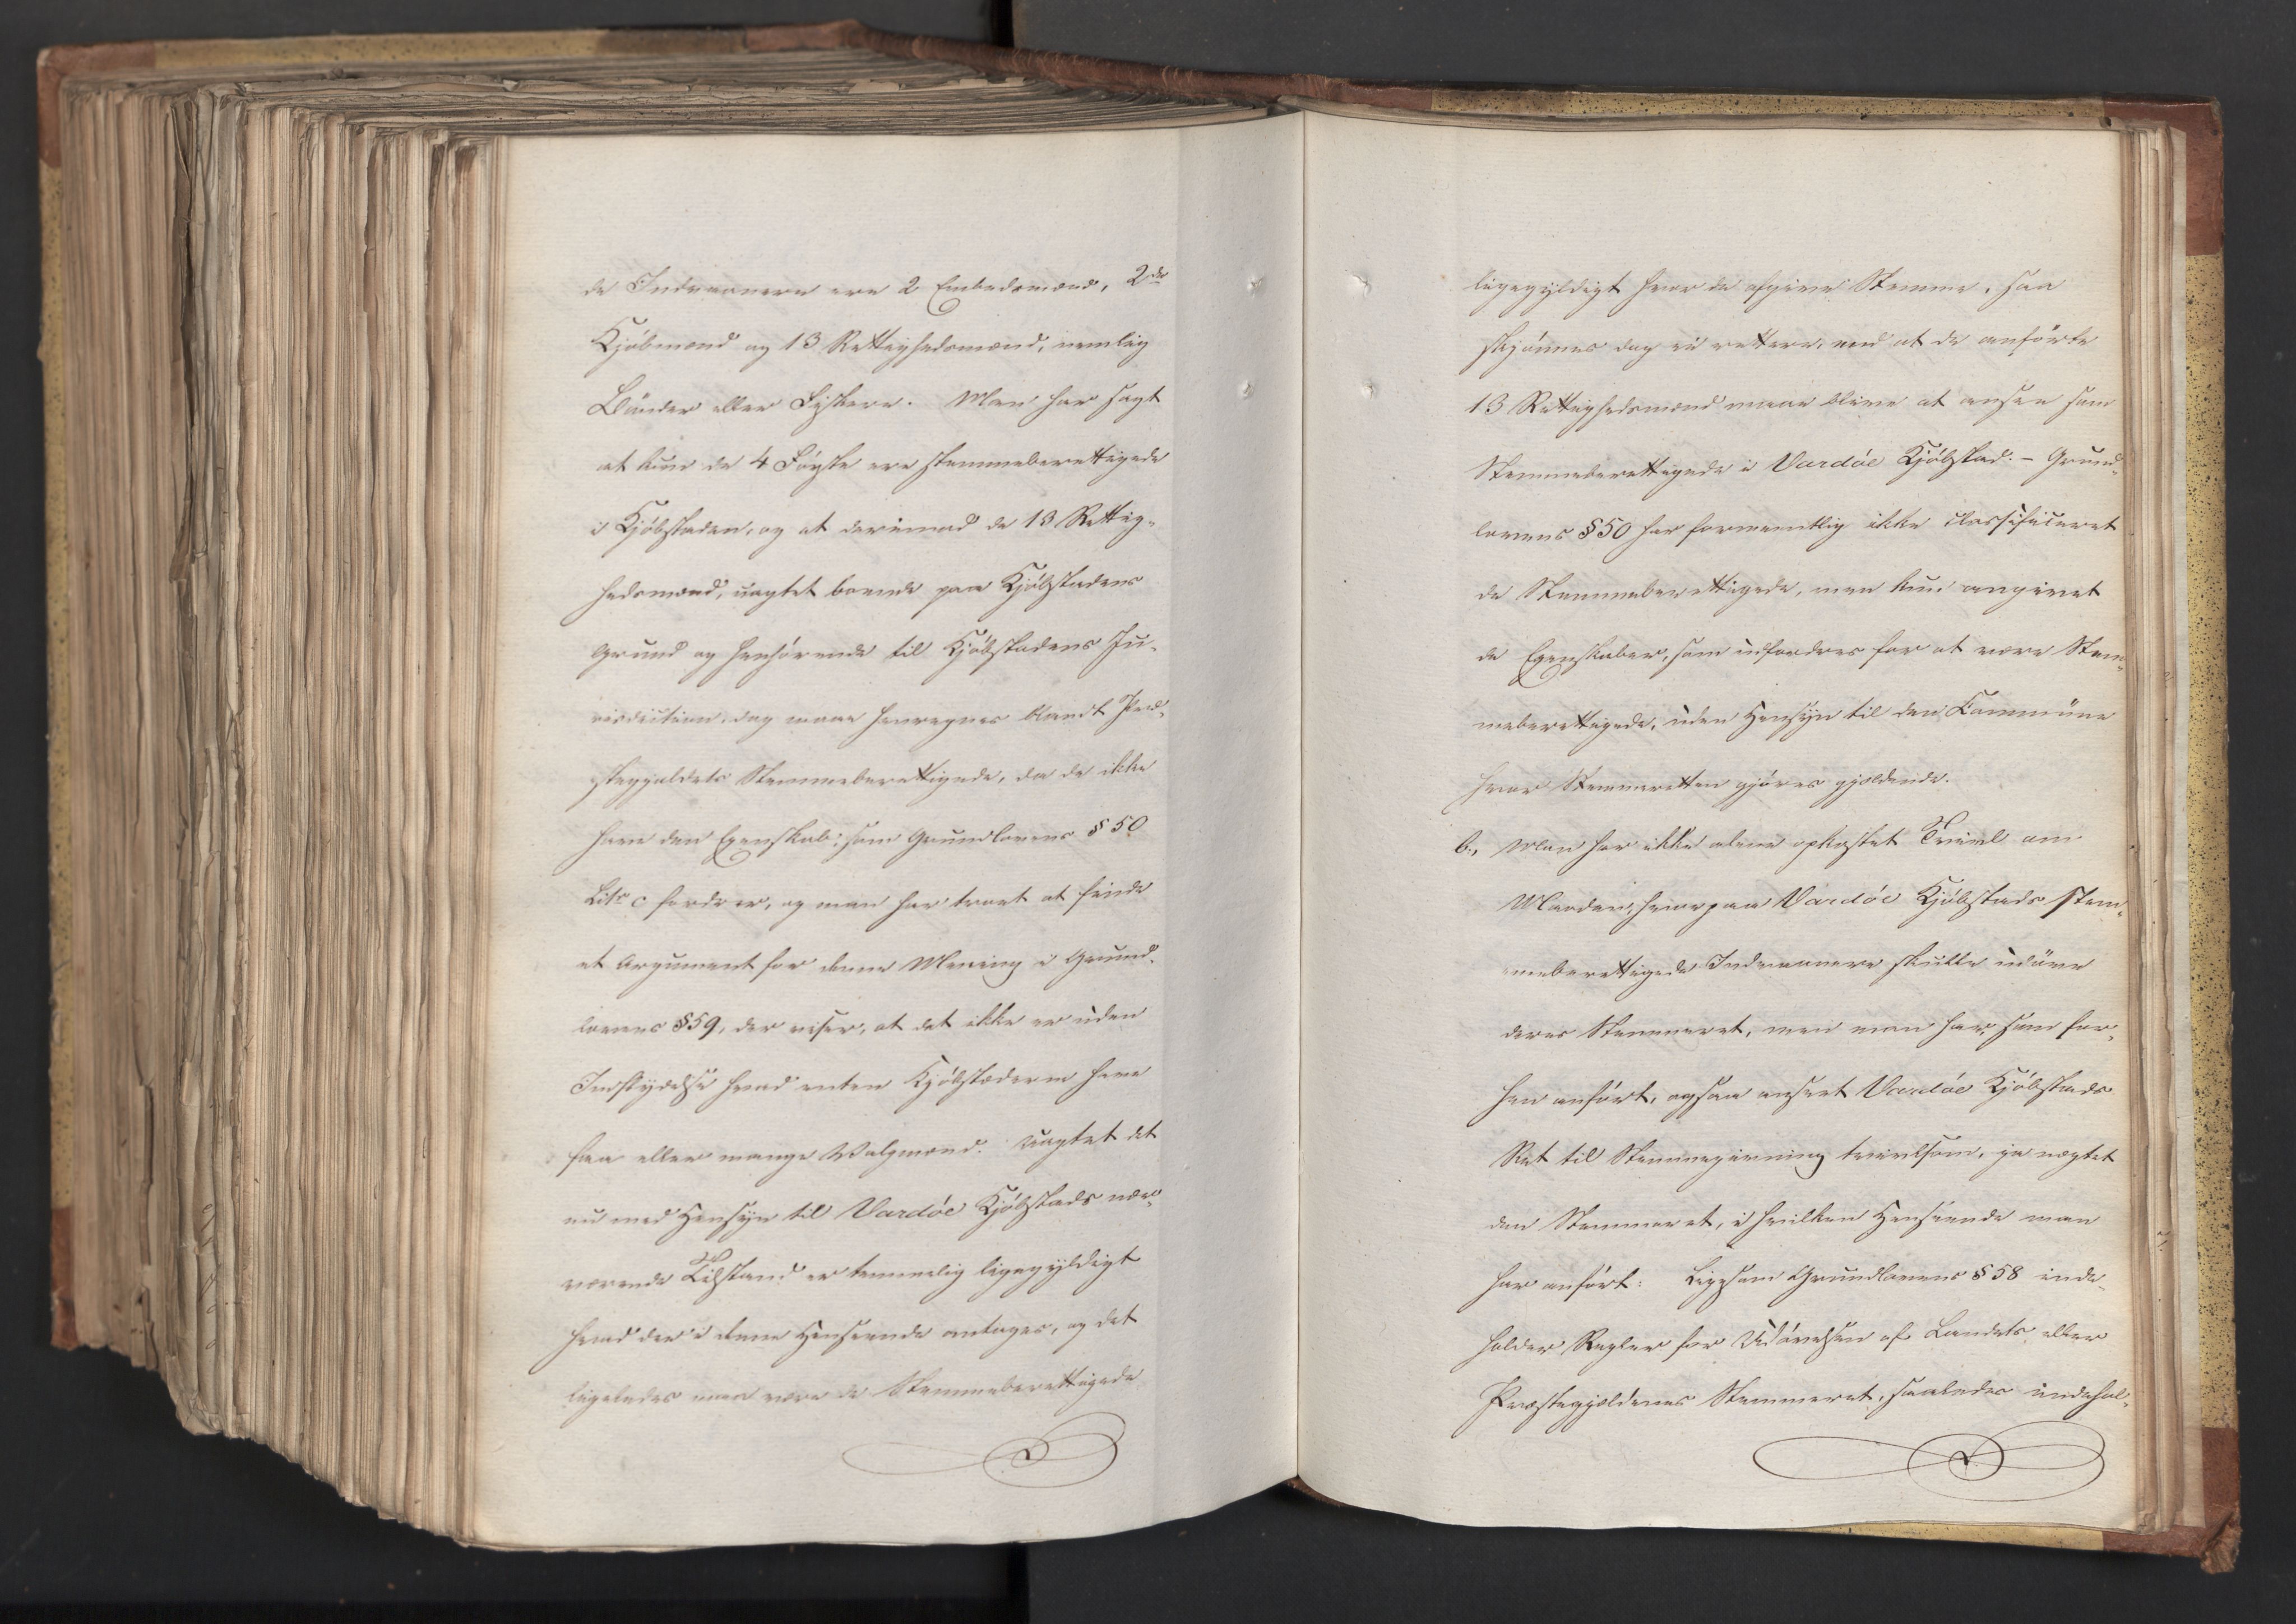 de Indvaanere ere 2 Embedsmænd, 2de
Kjøbmænd og 13 Rettighedsmænd, nemlig
Bønder eller Fiskere. Man har sagt
at kun de 4 Første ere stemmeberettigede
i Kjøbstaden, og at derimod de 13 Rettig-
hedsmænd, uagtet boende paa Kjøbstadens
Grund og henhørende til Kjøbstadens Ju-
risdiction, dog maae henregnes blandt Præ-
stegjeldets Stemmeberettigede, da de ikke
have den Egenskab, som Grundlovens § 50
Litr c fordrer, og man har troet at finde
et Argument for denne Mening i Grund-
lovens § 59, der viser, at det ikke er uden
Indflydelse hvad enten Kjøbstæderne have
faa eller mange Valgmænd. Uagtet det
nu med Hensyn til Vardøe Kjøbstads nær-
værende Tilstand er temmelig ligegyldigt
hvad der i denne Henseende antages, og det
ligeledes maa være de Stemmeberettigede
ligegyldigt hvor de afgive Stemme, saa
skjønnes dog ei rettere, end at de anførte
13 Rettighedsmænd maae blive at ansee som
Stemmeberettigede i Vardøe Kjøbstad. - Grund-
lovens § 50 har formeentlig ikke classificeret
de Stemmeberettigede, men kun angivet
de Egenskaber, som udfordres for at være Stem-
meberettigede, uden Hensyn til den Commune
hvor Stemmeretten gjøres gjældende.
b., Man har ikke alene opkastet Tvivl om
Maaden, hvorpaa Vardøe Kjøbstads stem-
meberettigede Indvaanere skulle udøve
deres Stemmeret, men man har, som for-
hen anført, ogsaa anseet Vardøe Kjøbstads
Ret til Stemmegivning tvivlsom, ja nægtet
den Stemmeret, i hvilken Henseende man
har anført: Ligesom Grundlovens § 58 inde-
holder Regler for Udøvelsen af Landets eller
Præstegjældenes Stemmeret, saaledes indehol-